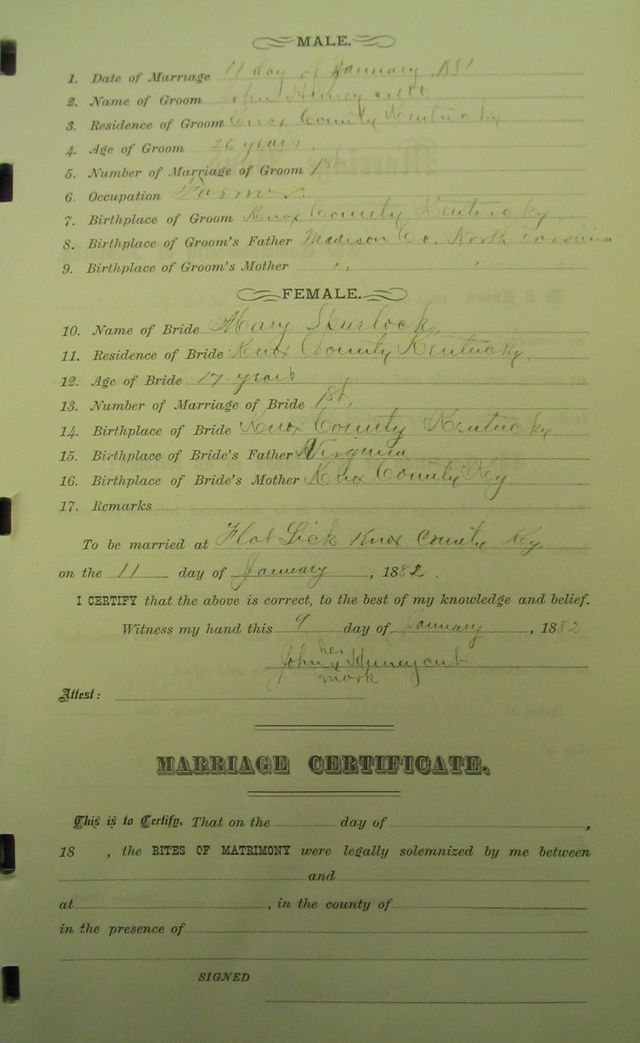 MALE.
1. Date of Marriage 11 day of January 188
2. Name of Groom John
3. Residence of Groom Knox County Kentucky
4. Age of Groom 26 years.
5. Number of Marriage of Groom 1st
6. Occupation Farmer.
7. Birthplace of Groom Knox County Kentucky
8. Birthplace of Groom's Father Madison Co. North Carolina
9. Birthplace of Groom's Mother " " "
FEMALE.
10. Name of Bride Mary Spurlock,
11. Residence of Bride Knox County Kentucky,
12. Age of Bride 17 years
13. Number of Marriage of Bride 1st,
14. Birthplace of Bride Knox County Kentucky
15. Birthplace of Bride's Father Virginia
16. Birthplace of Bride's Mother Knox County Ky.
17. Remarks
To be married at Flat Lick Knox County Ky.
on the 11 day of January, 1882.
I CERTIFY that the above is correct, to the best of my knowledge and belief.
Witness my hand this 9 day of January, 1882
his
John x Huneycut
mark
Attest:
MARRIAGE CERTIFICATE.
This is to Certify, That on the day of ,
18 , the RITES OF MATRIMONY were legally solemnized by me between
and
at , in the county of
in the presence of
SIGNED